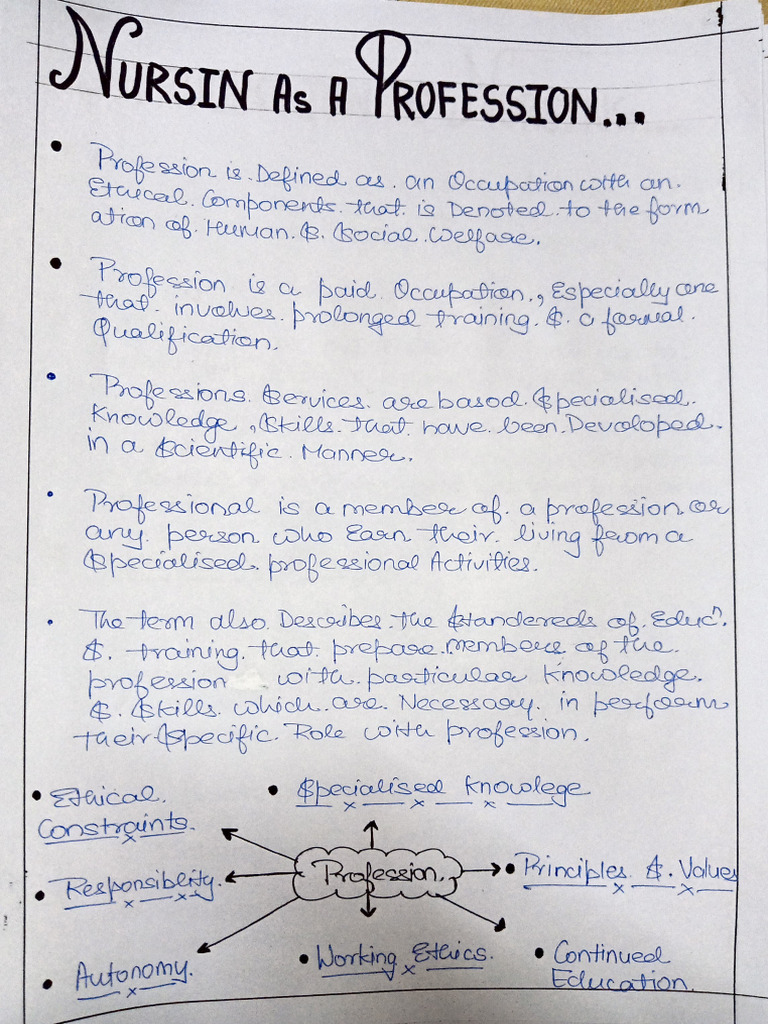 NURSIN AS A PROFESSION...
• Profession is. Defined as. an Occupation with an.
Ethical. Components. that. is Denoted. to the form
ation of. Human. &. Social. Welfare.
• Profession is a paid. Occupation., Especially one
that. involves. prolonged training. &. a formal.
Qualification.
• Professions. Services. are basod. Specialised.
Knowledge, Skills. that. have. been. Devoloped.
in a Scientific. Manner.
• Professional is a member of. a profession. or
any. person who Earn their. living from a
Specialised. professional Activities.
• The term also. Describes. the Standereds of. Educⁿ.
&. training. that prepare. members of the.
profession with. particular Knowledge.
&. Skills. which. are. Necessary. in perform
their Specific. Role with profession.
• Ethical.
Constraints.
• Specialised Knowlege
• Responsiblity.
Profession.
• Principles. &. Values
• Autonomy.
• Working Ethics.
• Continued
Education.